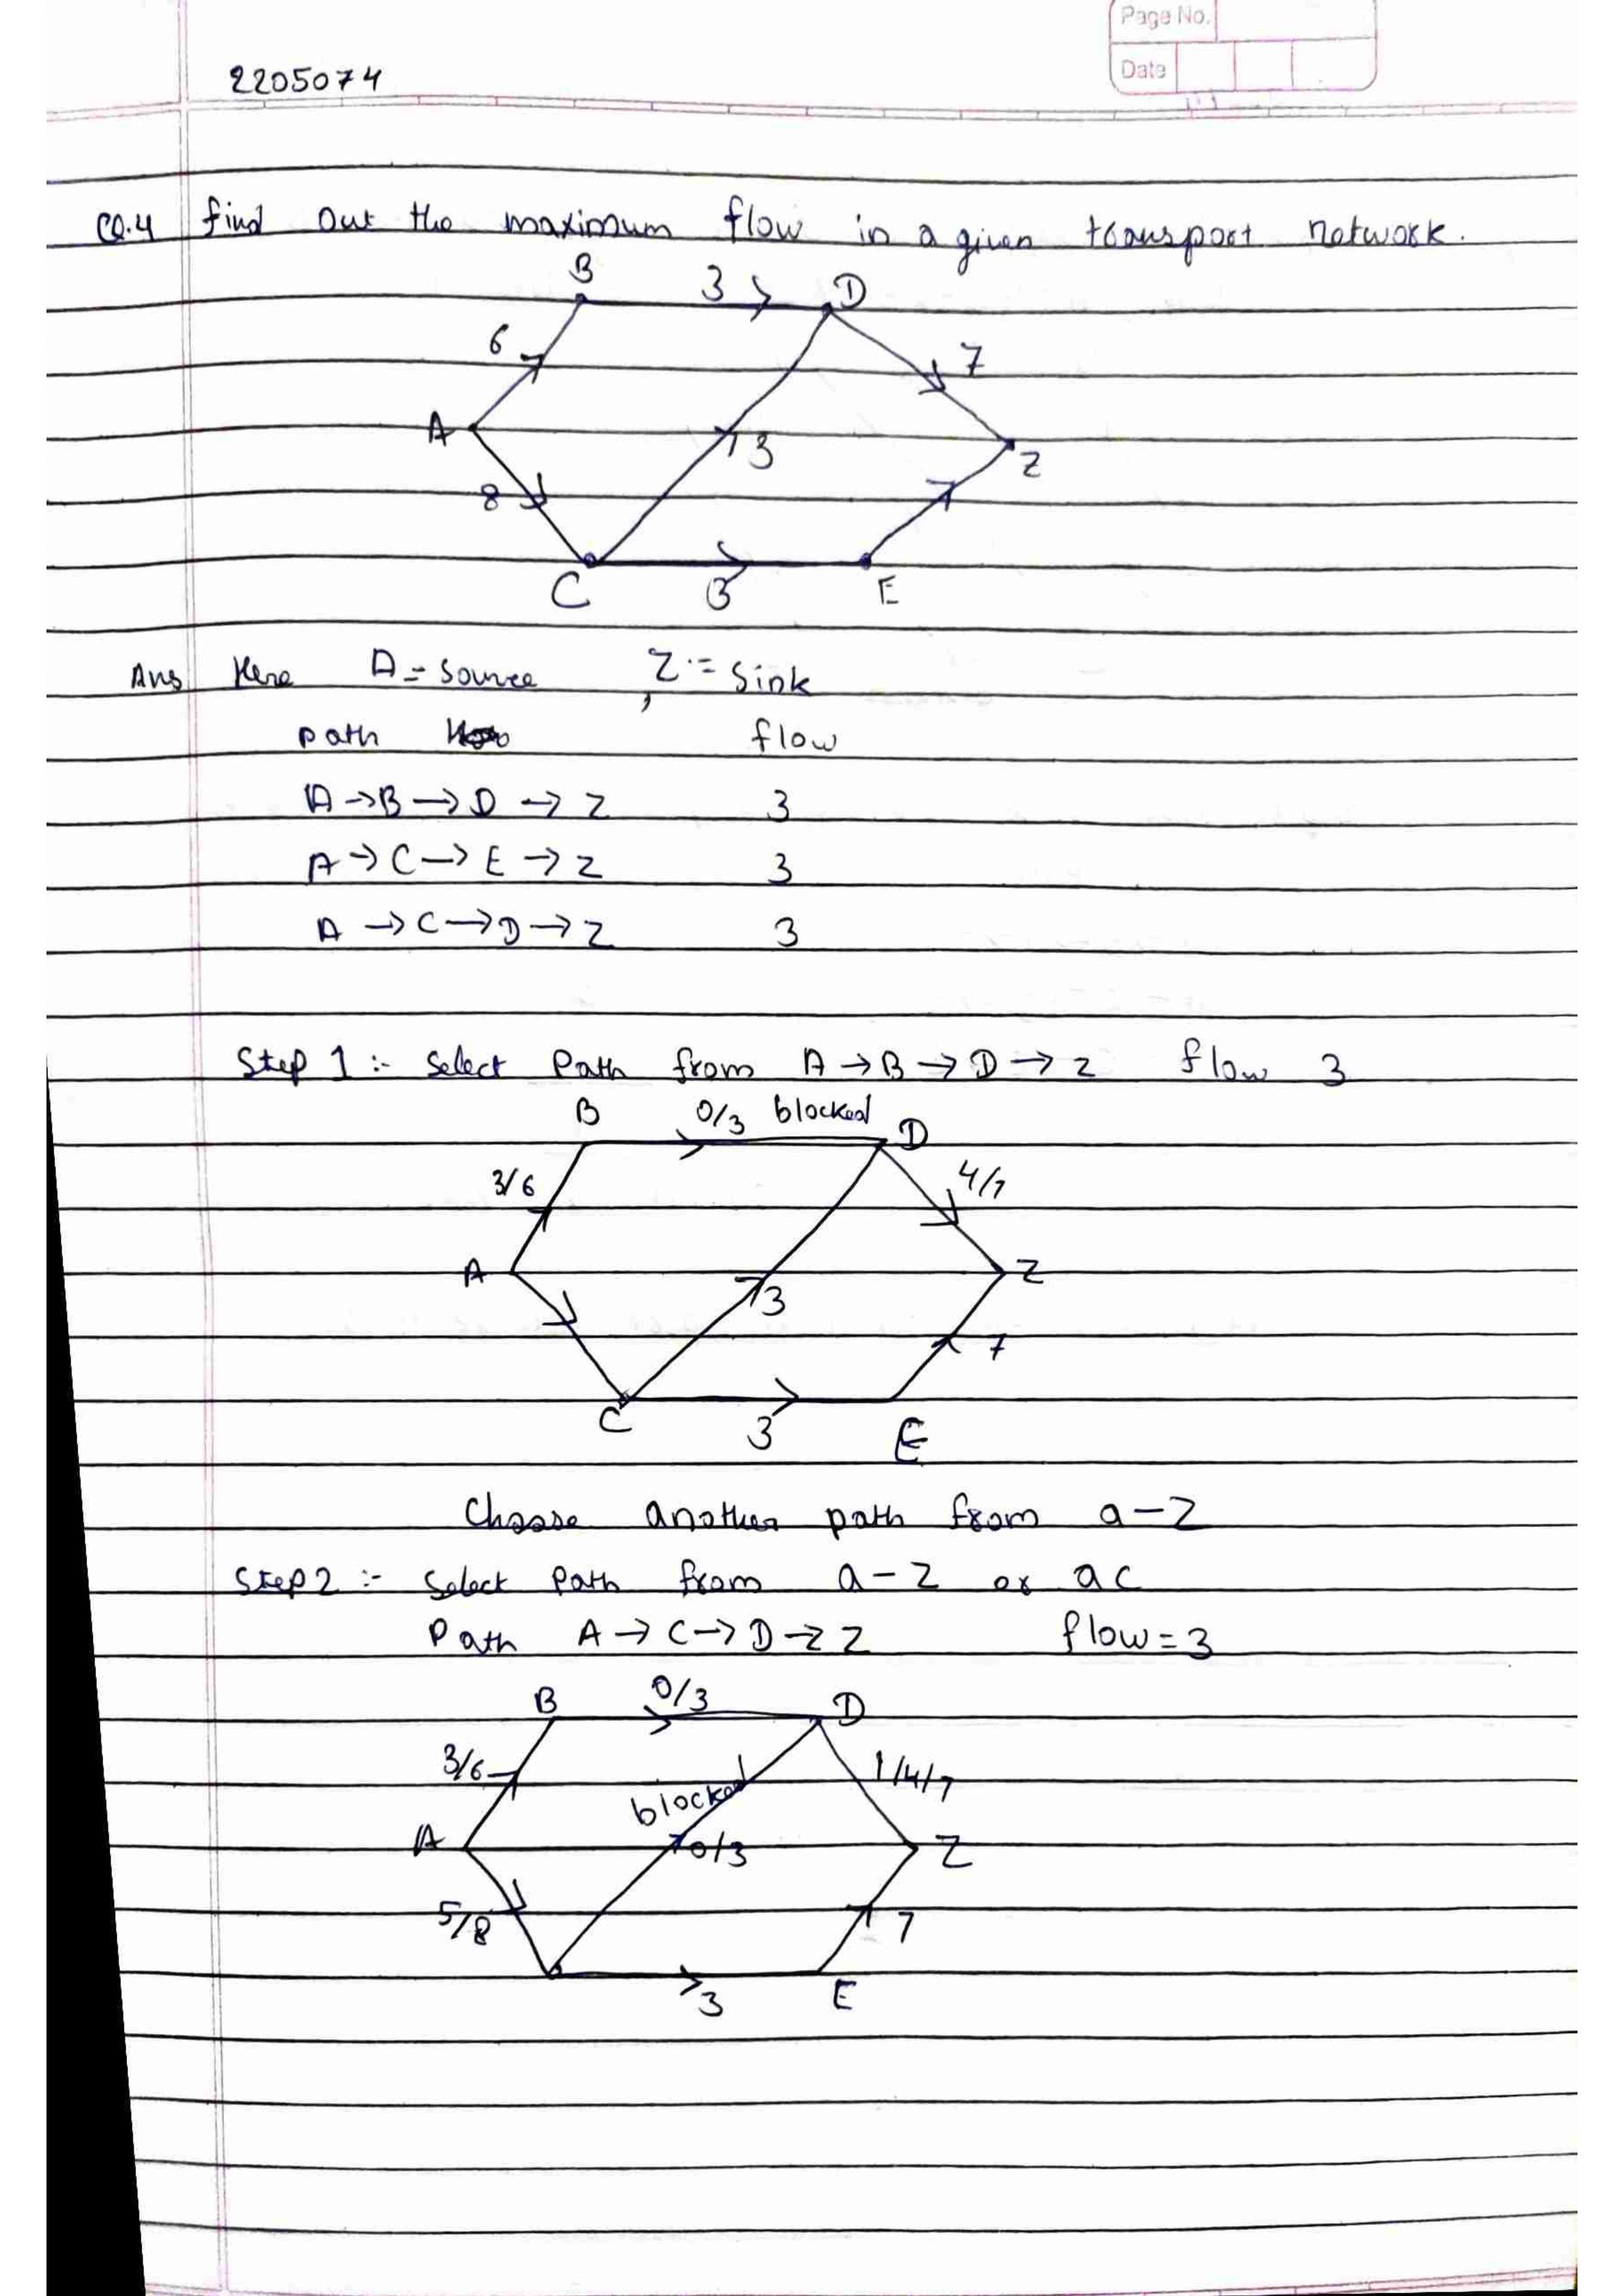 Page No.
Date
2205074
Q.4 find out the maximum flow in a given transport network.
B 3 D
6 7
A 3 Z
8
C 3 E
Ans Here A = source , Z = Sink
path flow
A → B → D → Z 3
A → C → E → Z 3
A → C → D → Z 3
Step 1 :- Select Path from A → B → D → Z flow 3
B 0/3 blocked D
3/6 4/7
A Z
3
7
C 3 E
Choose another path from a - z
Step 2 :- Select Path from a - z or ac
Path A → C → D → Z flow = 3
B 0/3 D
3/6 blocked 1/4/7
A 0/3 Z
5/8 7
3 E